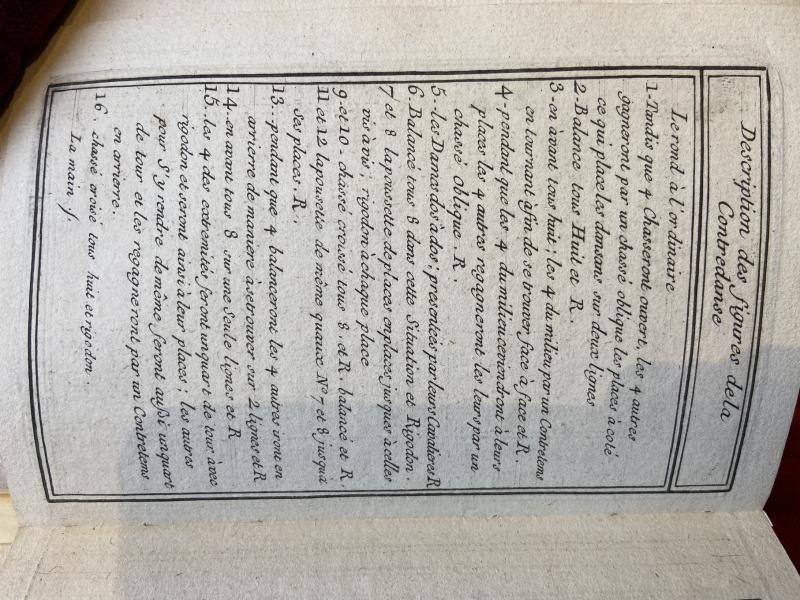 Description des figures de la
Contredanse
Le rond à l'ordinaire
1. Tandis que 4 Chasseront ouvert, les 4 autres
gagneront par un chassé oblique les places à coté
ce qui place les dansans sur deux lignes
2. Balance tous Huit et R.
3 - en avant tous huit; les 4 du milieu par un Contretems
en tournant afin de se trouver face à face et R.
4 - pendant que les 4 du milieu reviendront à leurs
places les 4 autres regagneront les leurs par un
chassé Oblique. R.
5 - les Dames dos à dos; presentés par leurs Cavalieres R
6. Balancé tous 8 dans cette Situation et Rigodon.
7 et 8 la poussette de places en places jusques à celles
vis à vis; rigodon à chaque place
9. et 10. chassé croissé tous 8. et R. balancé et R.
11 et 12 la pousette de même qu'aux Nº 7 et 8 jusqu'à
Ses places. R.
13. pendant que 4 balanceront les 4 autres iront en
arriere de maniere à se trouver sur 2 lignes et R
14. en avant tous 8 sur une seule lignes et R
15. les 4 des extremités feront un quart de tour avec
rigodon et seront ainsi à leur places; les autres
pour S'y rendre de meme feront aussi un quart
de tour et les regagneront par un Contretems
en arriere.
16. chassé croisé tous huit et rigodon.
La main f.